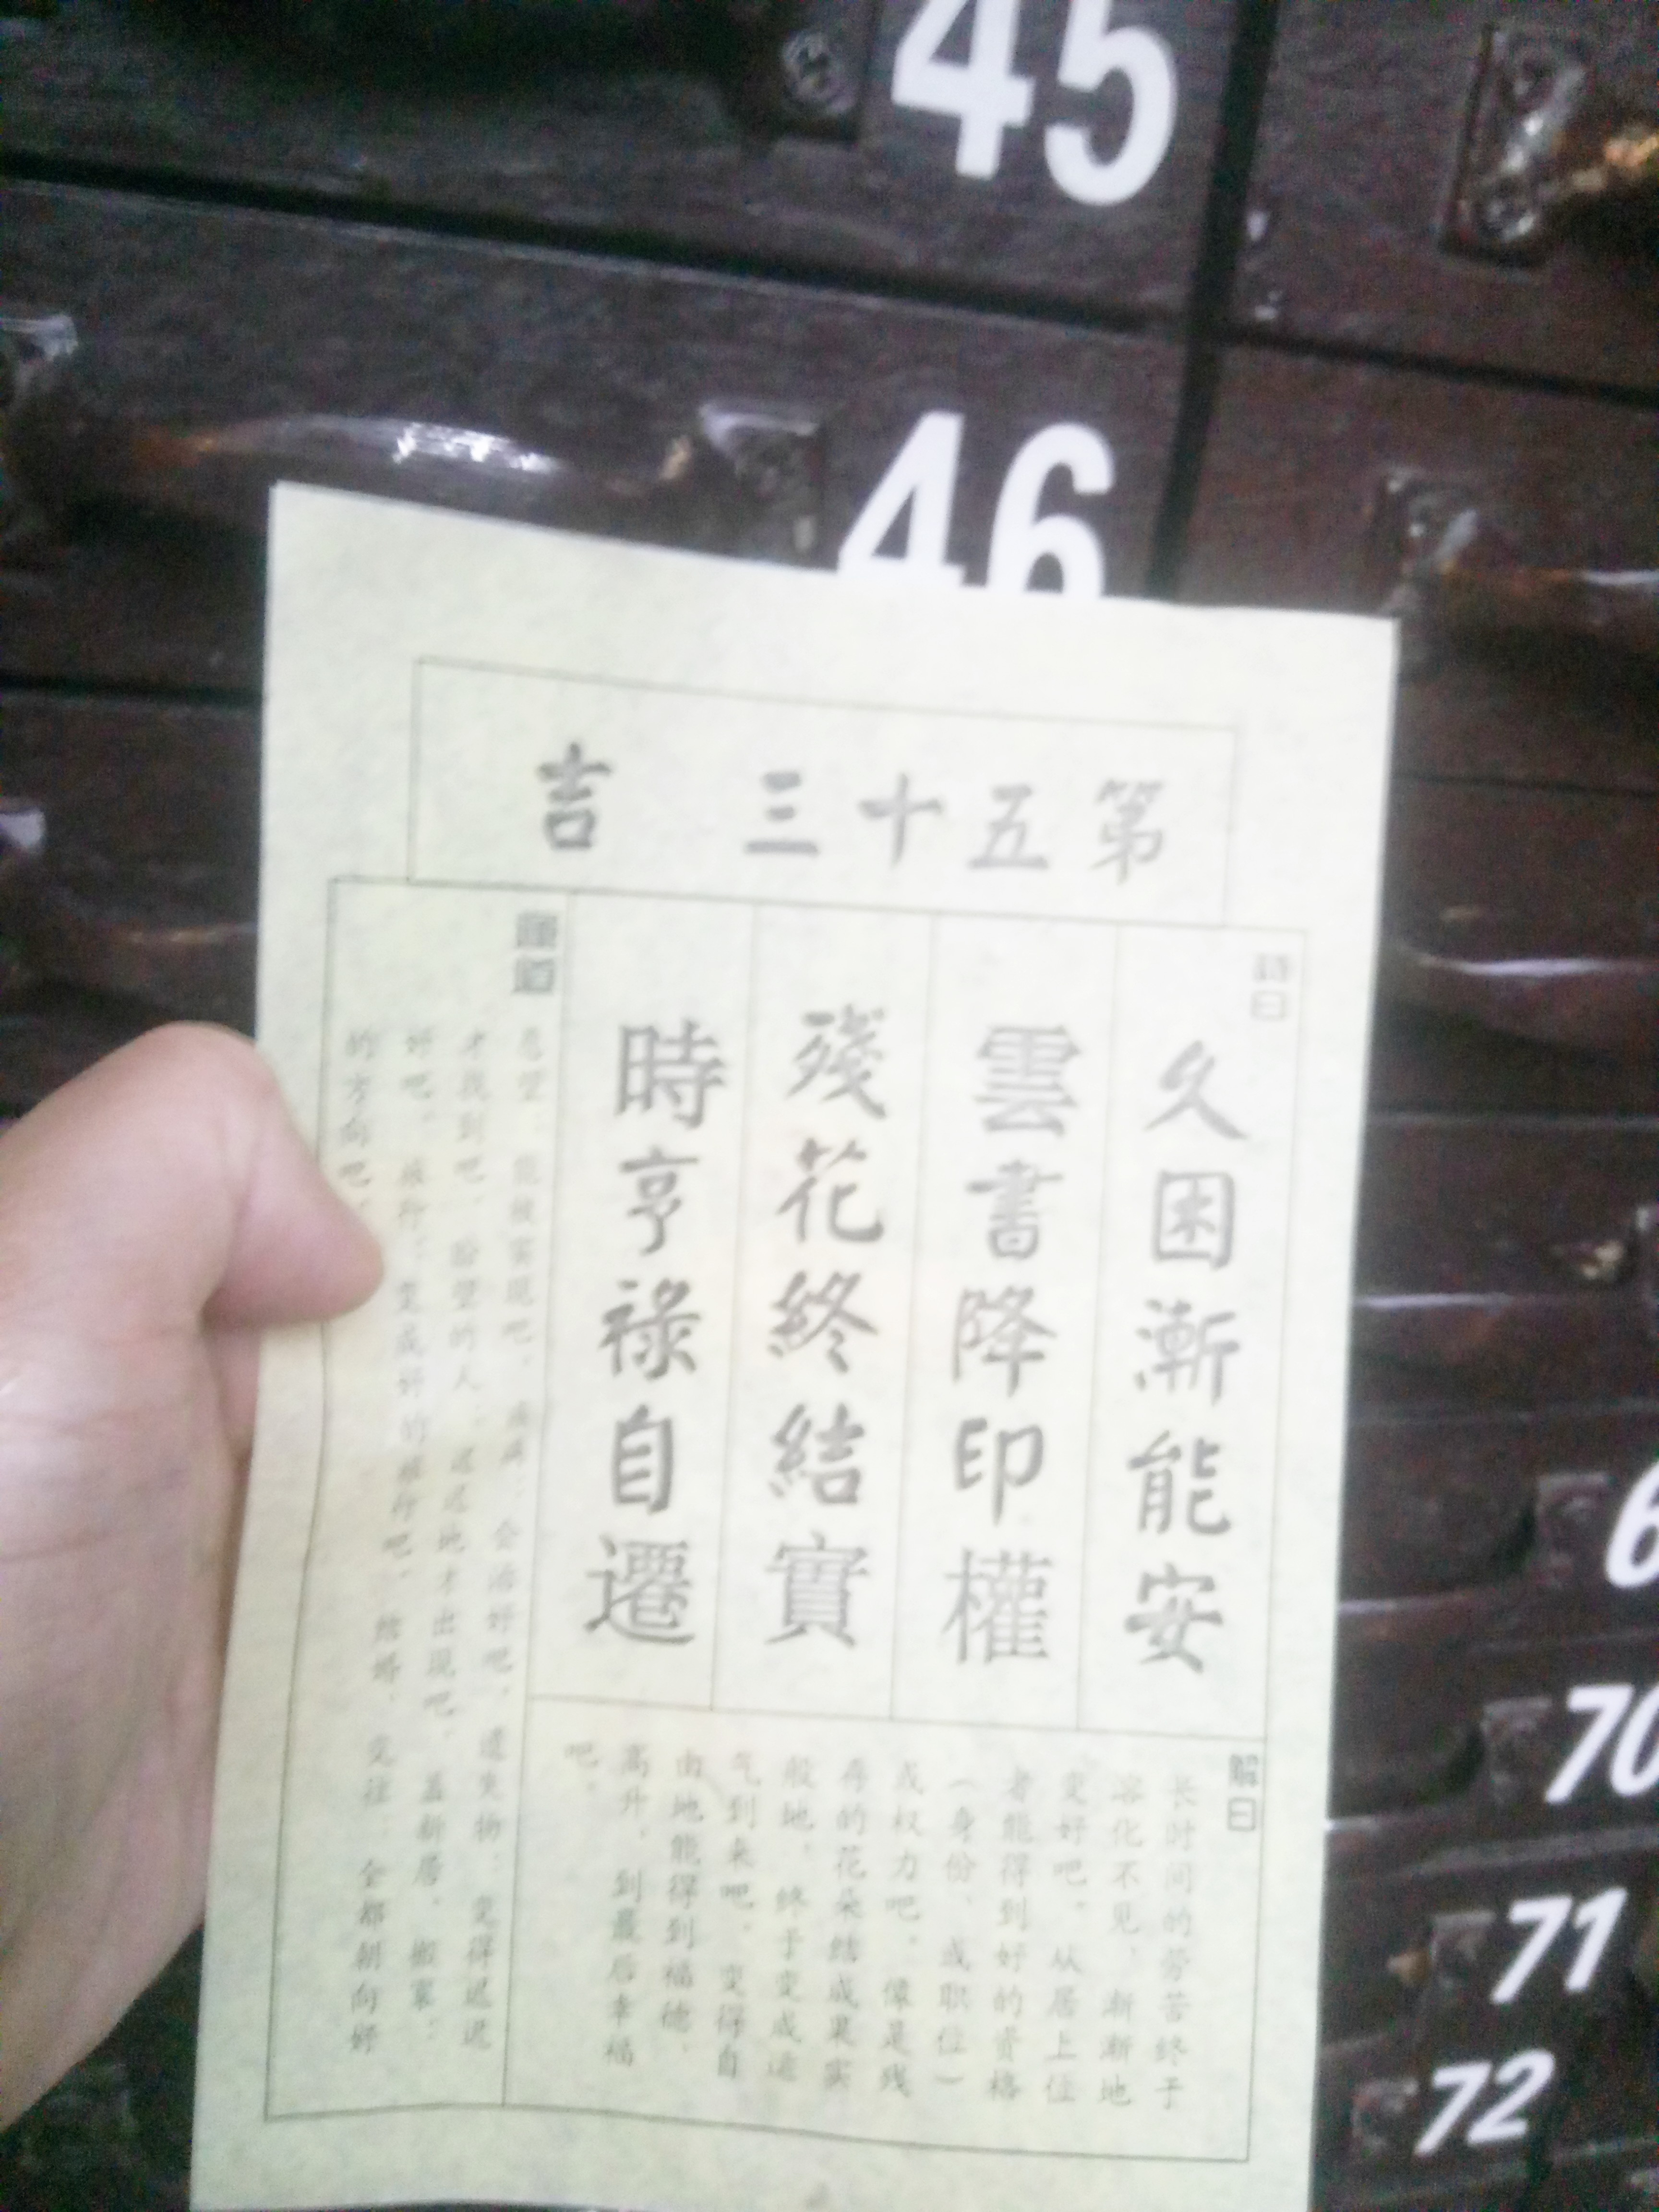 45
46
第五十三 吉
詩曰
久困漸能安
雲書降印權
殘花終結實
時亨祿自遷
解曰
长时间的劳苦终于
溶化不见,渐渐地
变好吧。从居上位
者能得到好的资格
(身份、或职位)
或权力吧。像是残
存的花朵结成果实
般地,终于变成运
气到来吧。变得自
由地能得到福德,
高升,到最后幸福
吧。
愿望:能被实现吧。疾病:会治好吧。遗失物:变得迟迟
才找到吧。盼望的人:迟迟地才出现吧。盖新居、搬家:
好吧。旅行:变成好的旅行吧。结婚、交往:全都朝向好
的方向吧。
6
70
71
72